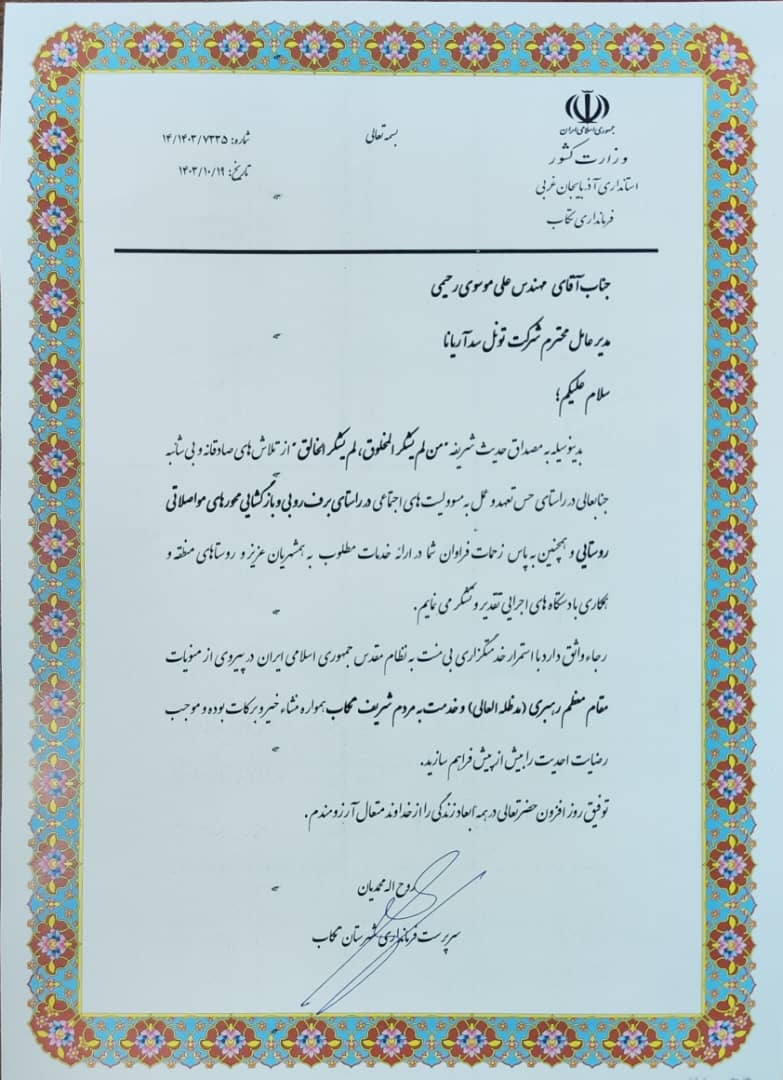 جمهوری اسلامی ایران
وزارت کشور
استانداری آذربایجان غربی
فرمانداری تکاب
بسمه تعالی
شماره: ۱۴/۱۴۰۳/۷۳۳۵
تاریخ: ۱۴۰۳/۱۰/۱۹
جناب آقای مهندس علی موسوی رحیمی
مدیر عامل محترم شرکت تونل سد آریانا
سلام علیکم؛
بدینوسیله به مصداق حدیث شریفه "من لم یشکر المخلوق، لم یشکر الخالق" از تلاش های صادقانه و بی شائبه
جنابعالی در راستای حس تعهد و عمل به مسوولیت های اجتماعی در راستای برف روبی و بازگشایی محورهای مواصلاتی
روستایی و همچنین به پاس زحمات فراوان شما در ارائه خدمات مطلوب به همشهریان عزیز و روستاهای منطقه و
همکاری با دستگاه های اجرایی تقدیر و تشکر می نمایم.
رجاء واثق دارد با استمرار خدمتگزاری بی منت به نظام مقدس جمهوری اسلامی ایران در پیروی از منویات
مقام معظم رهبری (مدظله العالی) و خدمت به مردم شریف تکاب همواره منشاء خیر و برکات بوده و موجب
رضایت احدیت را بیش از پیش فراهم سازید.
توفیق روز افزون حضرتعالی در همه ابعاد زندگی را از خداوند متعال آرزومندم.
روح اله محمدیان
سرپرست فرمانداری شهرستان تکاب